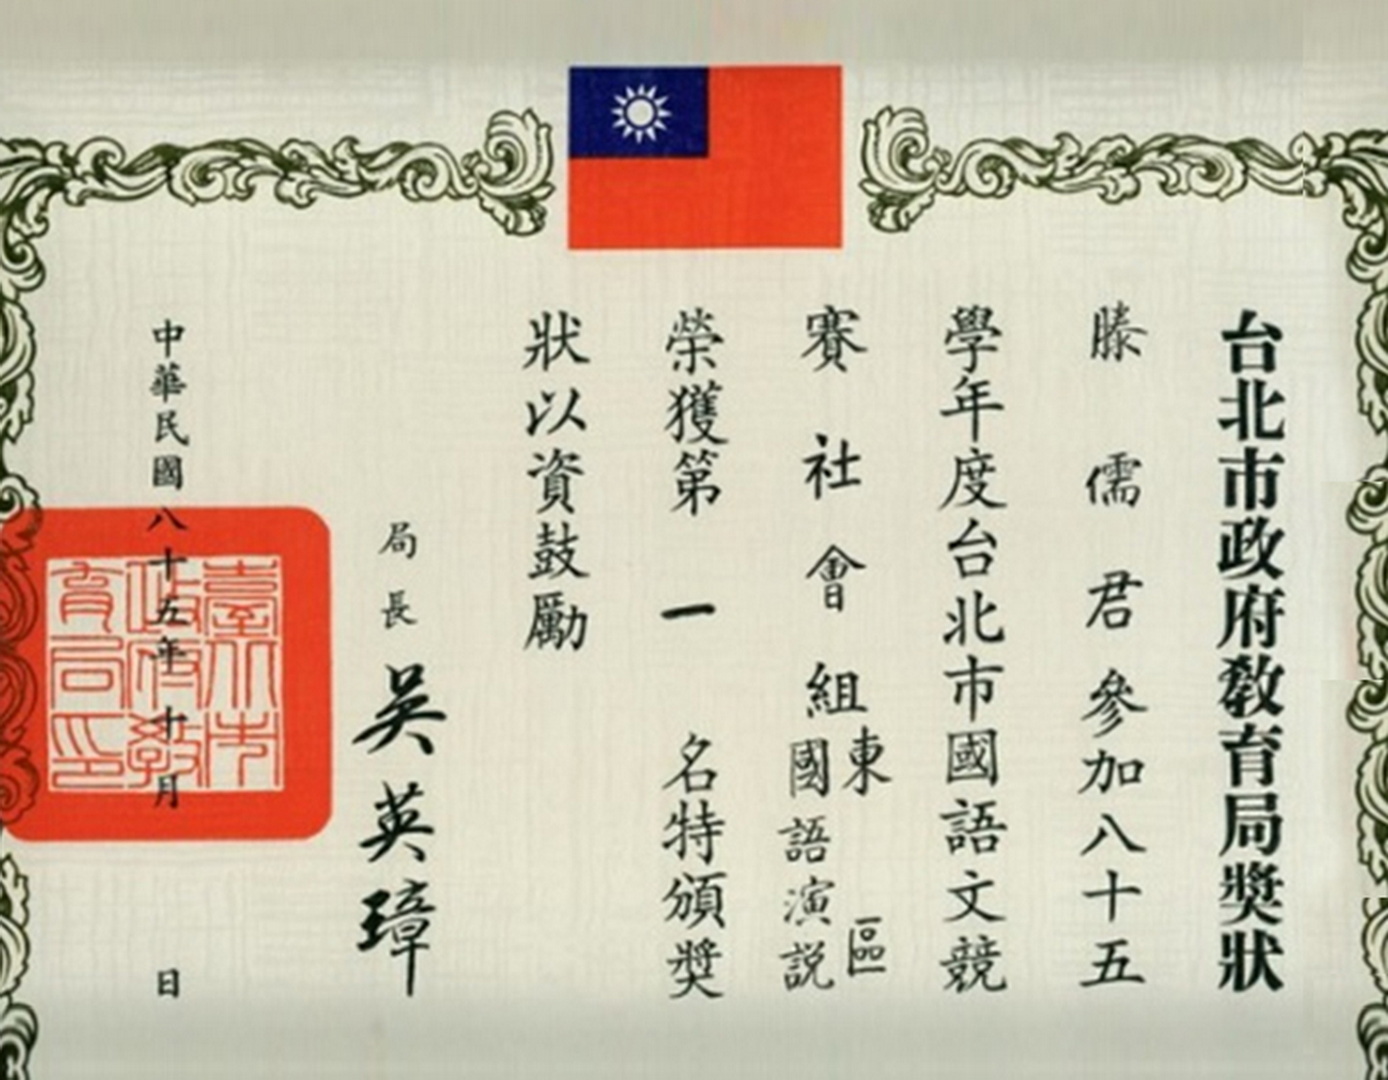 台北市政府教育局獎狀
滕儒君參加八十五
學年度台北市國語文競
賽社會組東區國語演説
榮獲第一名特頒獎
狀以資鼓勵
局長吳英璋
中華民國八十五年十月日
臺北市
政府教
育局印